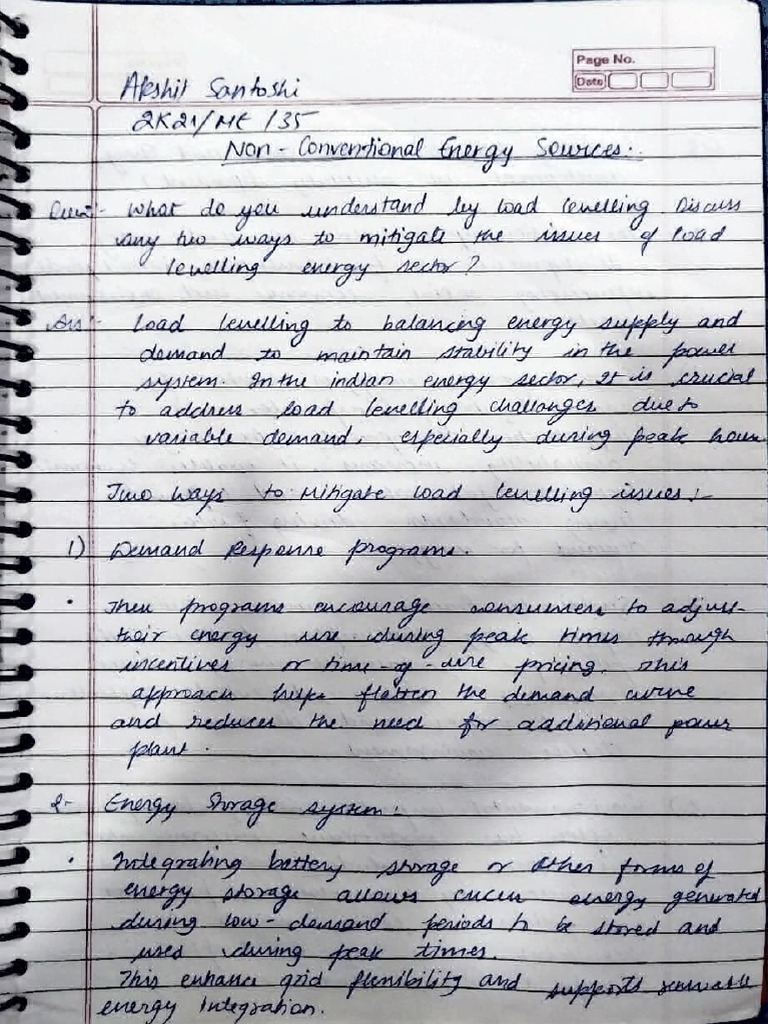 Page No.
Date
Akshit Santoshi
2K21/ME/35
Non-Conventional Energy Sources:.
Ques:- What do you understand by load levelling. Discuss
any two ways to mitigate the issues of load
levelling energy sector?
Ans:- Load levelling to balancing energy supply and
demand to maintain stability in the power
system. In the indian energy sector, It is crucial
to address load levelling challenges due to
variable demand, especially during peak hour
Two ways to Mitigate load levelling issues:-
1) Demand Response programs.
• These programs encourage consumers to adjust
their energy use during peak times through
incentives or time-of-use pricing. This
approach helps flatten the demand curve
and reduces the need for additional power
plant.
2- Energy Storage system:
• Integrating battery storage or other forms of
energy storage allows excess energy generated
during low-demand periods to be stored and
used during peak times.
This enhance grid flexibility and supports renewable
energy Integration.